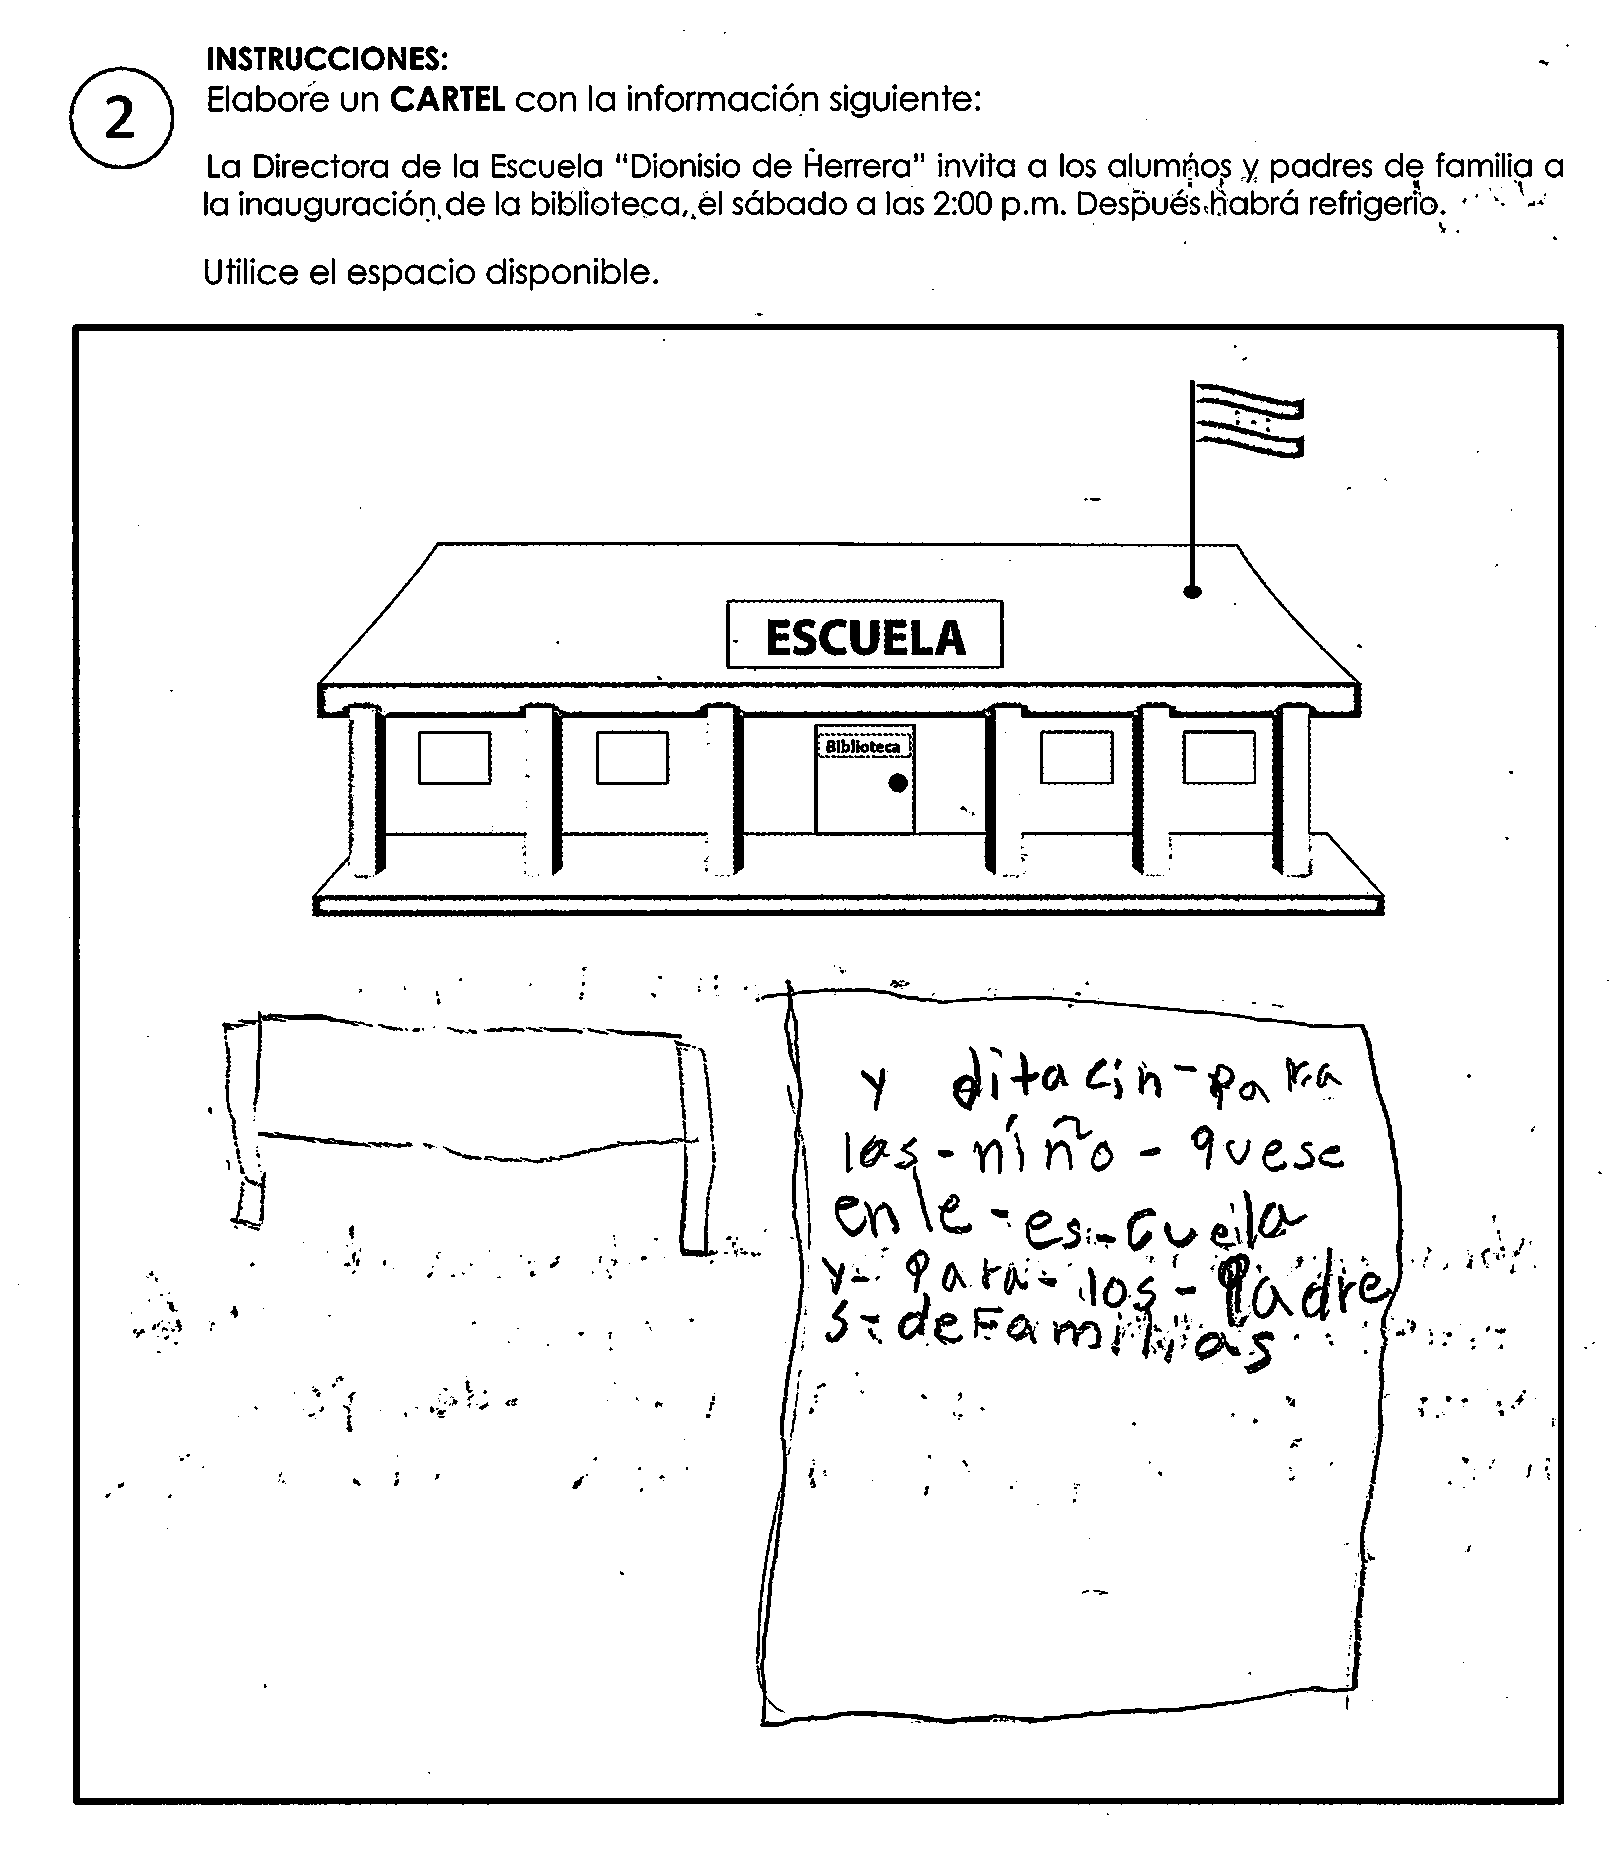 INSTRUCCIONES:
2
Elabore un CARTEL con la información siguiente:
La Directora de la Escuela "Dionisio de Herrera" invita a los alumnos y padres de familia a
la inauguración de la biblioteca, el sábado a las 2:00 p.m. Después habrá refrigerio.
Utilice el espacio disponible.
ESCUELA
Biblioteca
y ditacin-para
las-niño-quese
enle-es-cuela
y-para-los-Padre
s-deFamilias